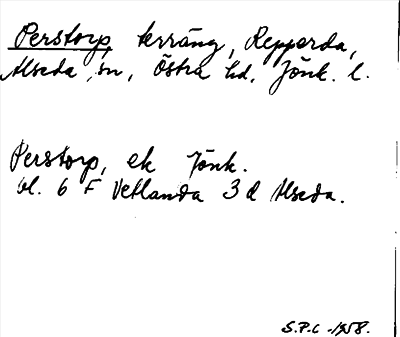 Perstorp, terräng, Repperda,
Alseda sn, Östra hd, Jönk. l.
Perstorp, ek Jönk.
bl. 6 F Vetlanda 3 d Alseda.
S.P.C -1958.